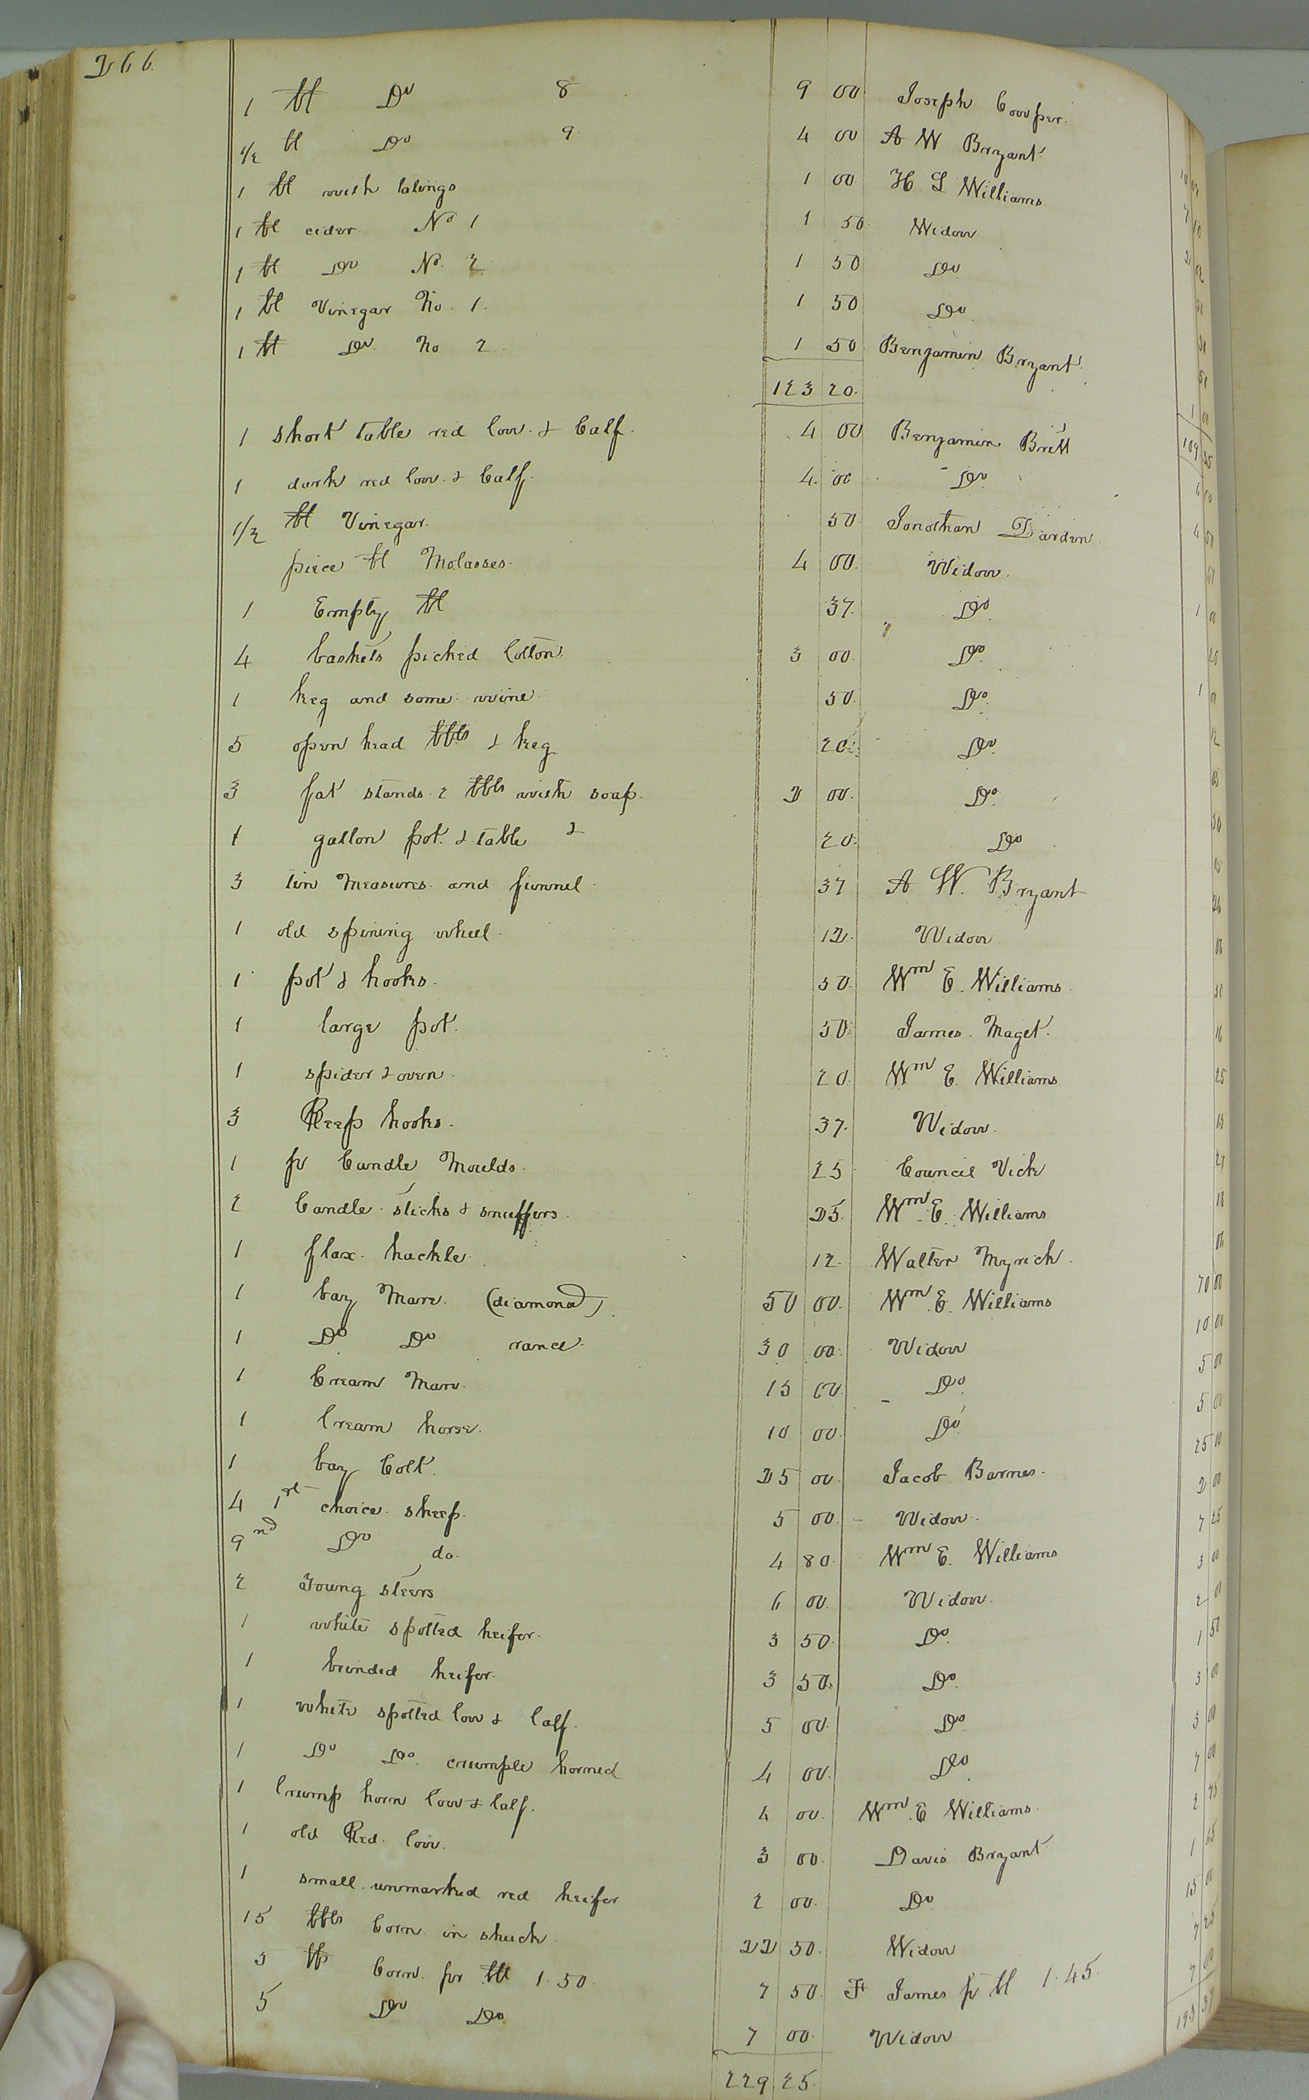 266
1 bl Do 8 9 00 Joseph Cooper
1/2 bl Do 9 4 00 A W Bryant
1 bl with lalings 1 00 H S Williams
1 bl cider No 1 1 50 Widow
1 bl Do No 2 1 50 Do
1 bl Vinegar No 1 1 50 Do
1 bl Do No 2 1 50 Benjamin Bryant
123 20
1 short table red Cow & Calf 4 00 Benjamin Britt
1 dark red Cow & Calf 4 00 Do
1/2 bl Vinegar 50 Jonathan Darden
piece bl Molasses 4 00 Widow
1 Empty bl 37 Do
4 baskets picked Cotton 3 00 Do
1 keg and some wine 50 Do
5 open head bbls & keg 20 Do
3 fat stands 2 bbls with soap 2 00 Do
1 gallon pot & table & 20 Do
3 tin Measures and funnel 37 A W. Bryant
1 old spining wheel 12 Widow
1 pot & hooks 50 Wm E. Williams
1 large pot 50 James Maget
1 spider & oven 20 Wm E. Williams
3 Reep hooks 37 Widow
1 pr Candle Moulds 25 Council Vick
2 Candle sticks & snuffers 25 Wm E. Williams
1 flax hackle 12 Walter Myrick
1 bay Mare (diamond) 50 00 Wm E. Williams
1 Do Do 30 00 Widow
1 Cream Mare 15 00 Do
1 Cream horse 10 00 Do
1 bay Colt 25 00 Jacob Barnes
4 1st choice sheep 5 00 Widow
9 nd Do do 4 80 Wm E. Williams
2 Young steers 6 00 Widow
1 white spotted heifer 3 50 Do
1 brinded heifer 3 50 Do
1 White spotted Cow & Calf 5 00 Do
1 Do Do crumple horned 4 00 Do
1 Crump horn Cow & Calf 4 00 Wm E Williams
1 old Red Cow 3 00 Davis Bryant
1 small unmarked red heifer 2 00 Do
15 bbls Corn in shuck 22 50 Widow
5 bls Corn pr bl 1.50 7 50 F James pr bl 1.45
5 Do Do 7 00 Widow
229 25